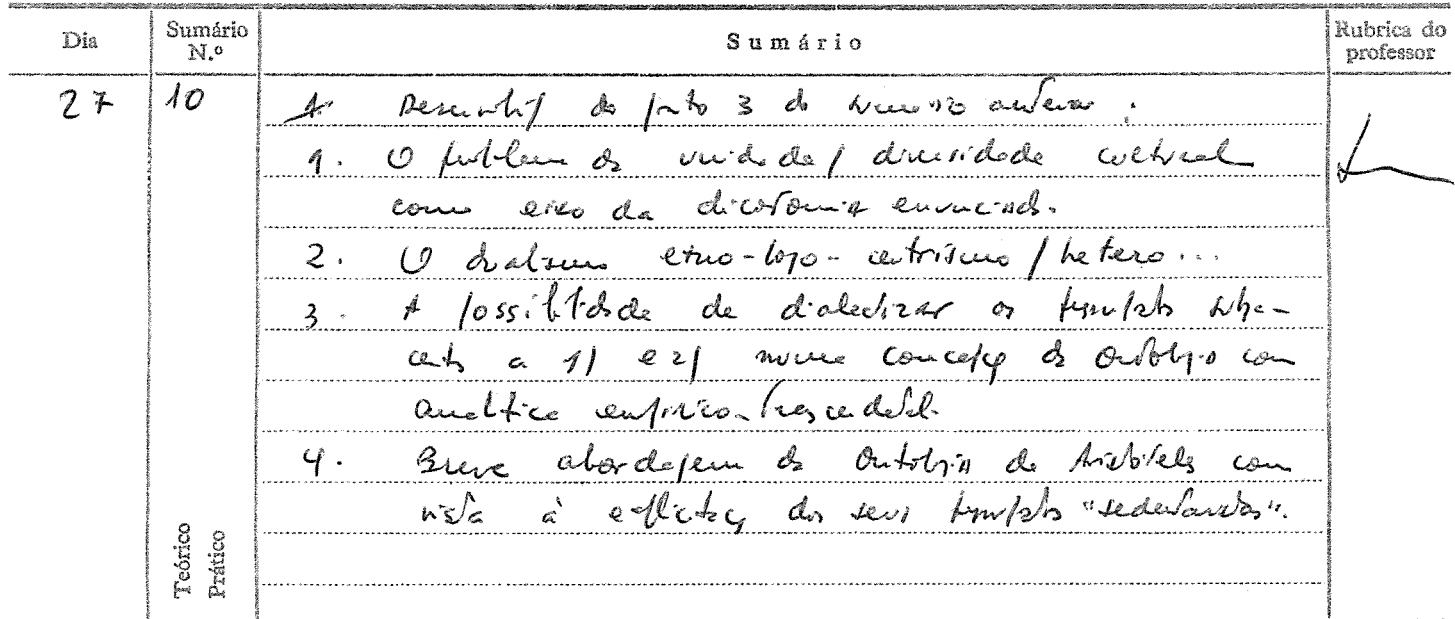 Dia
Sumário N.º
Sumário
Rubrica do professor
27
10
do ponto 3 do sumário anterior:
1. O problema da unidade / diversidade cultural
como eixo da dicotomia enunciada.
2. O dualismo etno-logo-centrismo / hetero...
3. A possibilidade de dialectizar os
a 1/ e 2/ numa concepção de Ontologia com
analítica empírico-transcendental.
4. Breve abordagem da Ontologia de Aristóteles com
vista à explicitação dos seus "sedentários".
Teórico
Prático